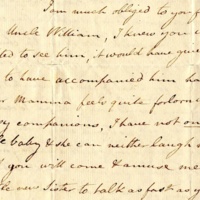 I am much obliged to you f
Uncle William, I knew you
ted to see him, & would have give
to have accompanied him ha
r Mamma feels quite forlorn
y companions, I have not on
baby & she can neither laugh n
you will come & amuse me
new Sister to talk as fast as y